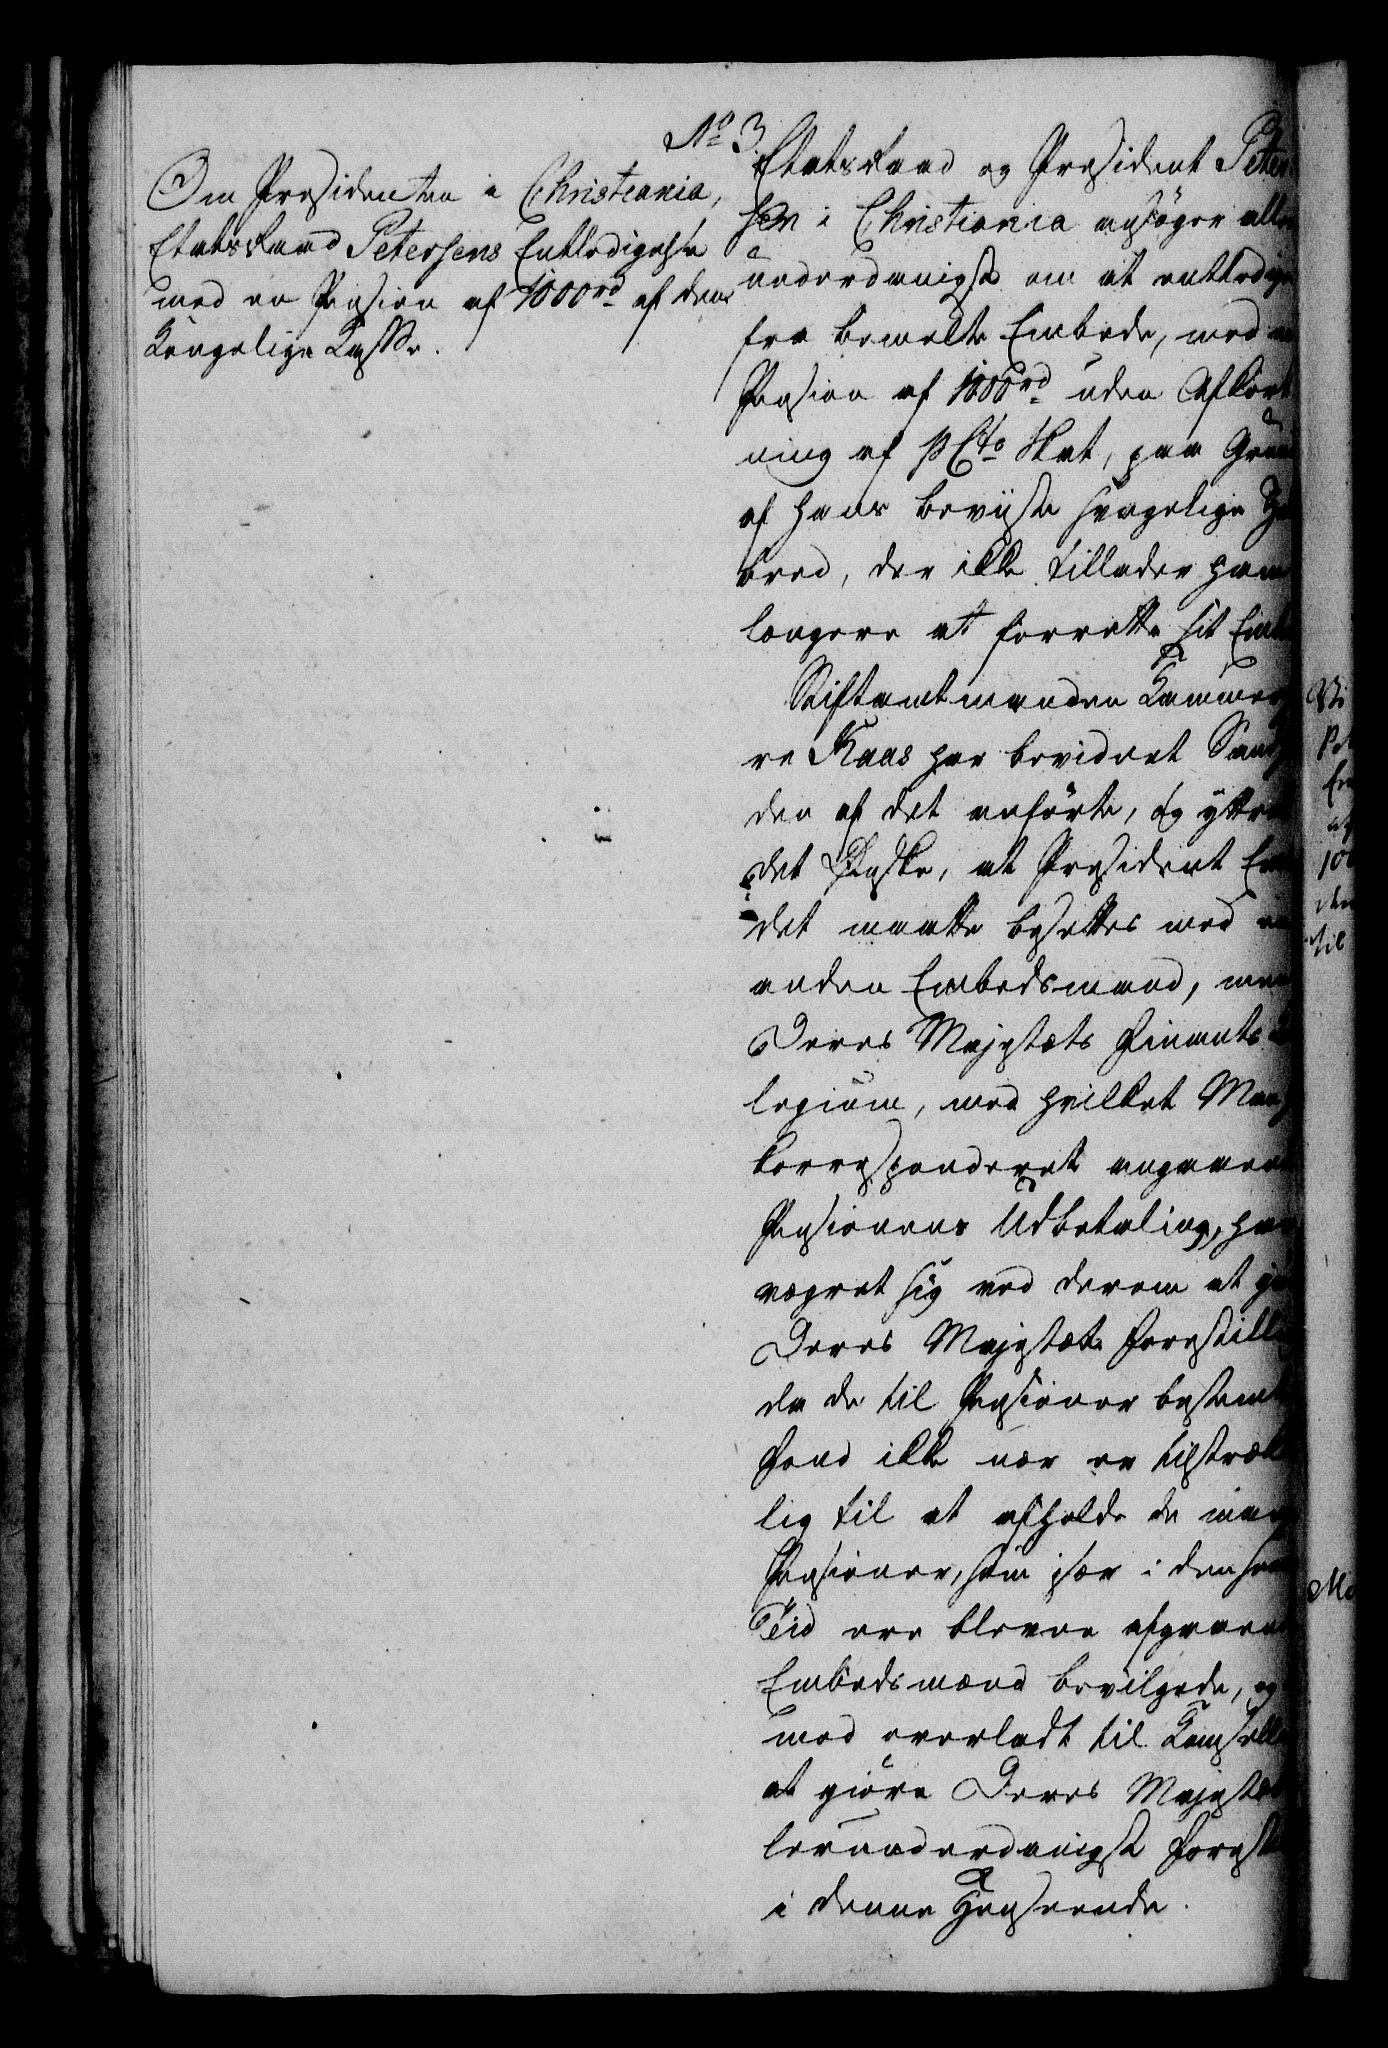 No 3.
Om Præsidenten i Christiania,
Etatsraad Petersens Entledigelse
med en Pension af 1000rd af den
Kongelige Kasse.
Etatsraad og Præsident Peter-
sen i Christiania ansøger aller
underdanigst om at entledige
fra bemelte Embede, med en
Pension af 1000rd uden Afkort
ning af pCto Skat, paa Grund
af hans beviiste svagelige Hel
bred, der ikke tillader ham
længere at forrette sit Embe
Stiftamtmanden Kammerher
re Kaas har bevidnet Sand
den af det anførte, og yttret
det Ønske, at Præsident Em
det maatte besættes med en
anden Embedsmand, men
Deres Majestæts Finants Col
legium, med hvilket Man
korresponderet angaaend
Pensionens Udbetaling, har
vægret sig ved derom at giø
Deres Majestæt Forestilli
da de til Pensioner bestemt
Fond ikke nær er tilstrække
lig til at afholde de mang
Pensioner, som især i den sen
Tiid ere blevne afgaaend
Embedsmænd bevilgede, og
med overladt til Kanselli
at giøre Deres Majestæt
lerunderdanigst Forest
i denne Henseende.
Vi
Pet
Em
af
100
den
til